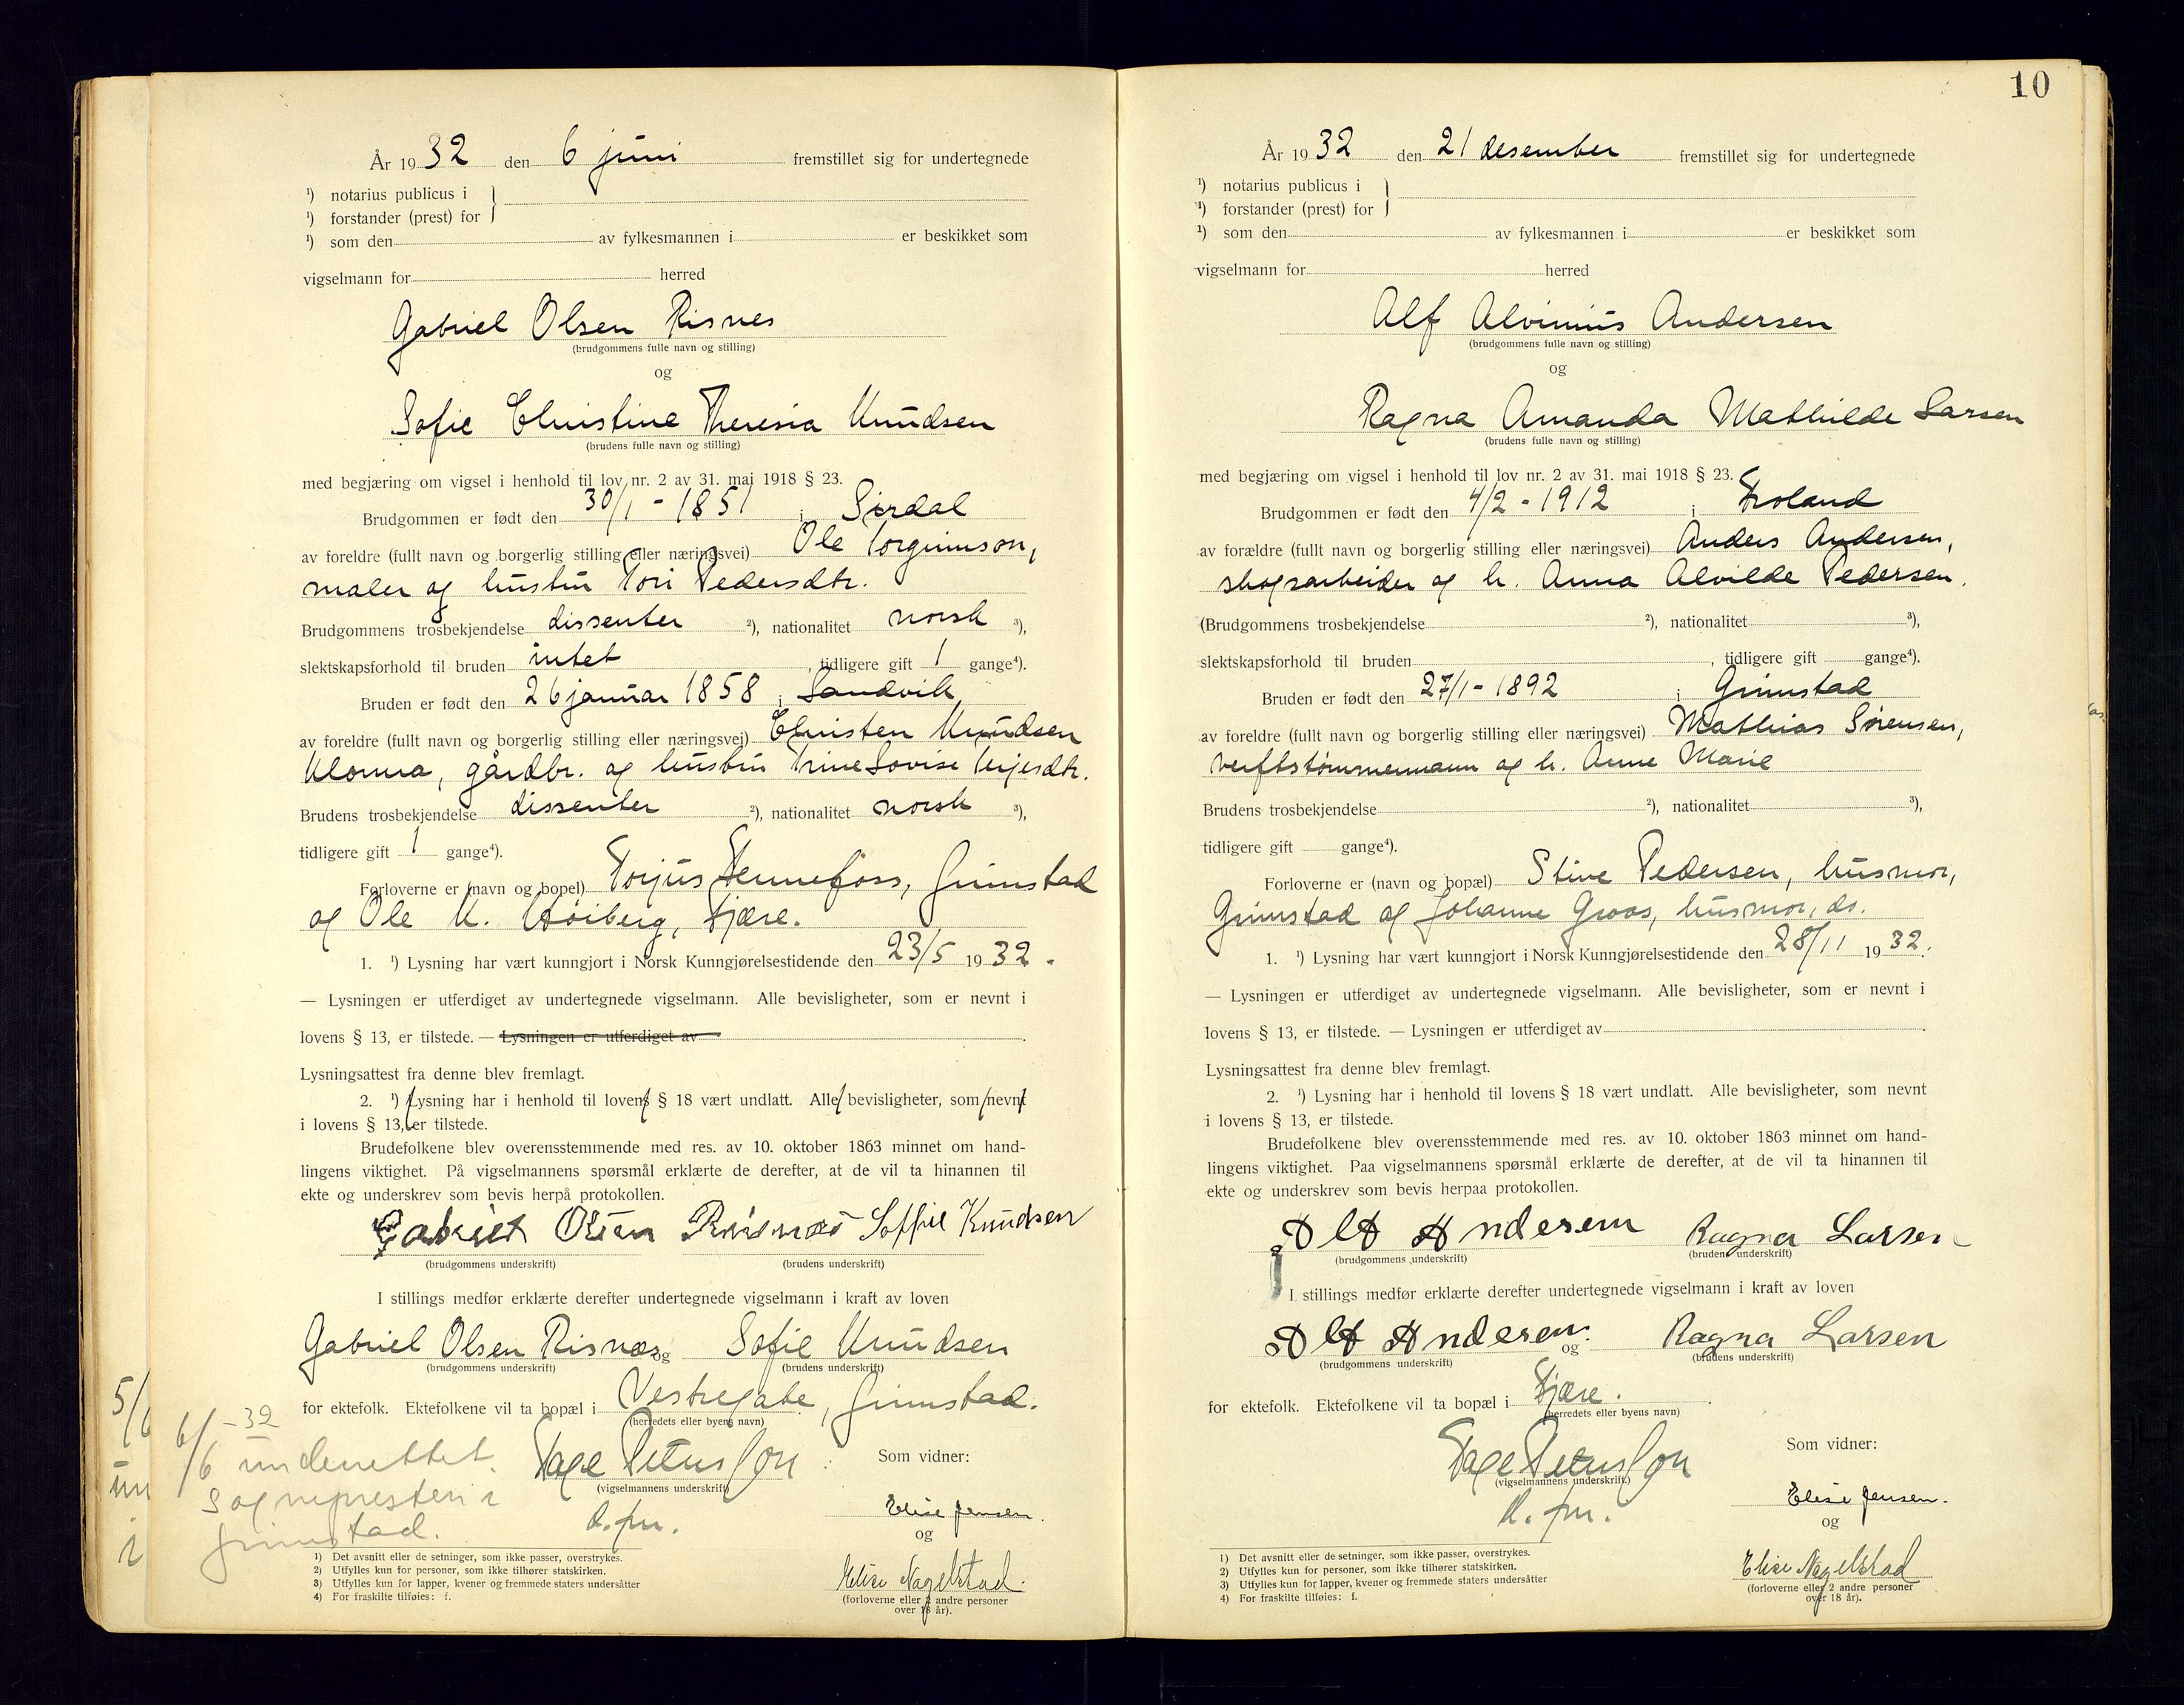 År 1932 den 6 juni fremstillet sig for undertegnede
¹) notarius publicus i
¹) forstander (prest) for
¹) som den av fylkesmannen i er beskikket som
vigselmann for herred
Gabriel Olsen Risnes
(brudgommens fulle navn og stilling)
og
Sofie Christine Theresia Knudsen
(brudens fulle navn og stilling)
med begjæring om vigsel i henhold til lov nr. 2 av 31. mai 1918 § 23.
Brudgommen er født den 30/1 - 1851 i Sirdal
av foreldre (fullt navn og borgerlig stilling eller næringsvei) Ole Torgrimson,
maler og hustru Tori Pedersdtr.
Brudgommens trosbekjendelse dissenter ²), nationalitet norsk ³),
slektskapsforhold til bruden intet, tidligere gift 1 gange⁴).
Bruden er født den 26 januar 1858 i Landvik
av foreldre (fullt navn og borgerlig stilling eller næringsvei) Christen Knudsen
Klonna, gårdbr. og hustru Trine Lovise Terjesdtr.
Brudens trosbekjendelse dissenter ²), nationalitet norsk ³),
tidligere gift 1 gange⁴).
Forloverne er (navn og bopel) Torjus Hennefoss, Grimstad
og Ole K. Høiberg, Fjære.
1. ¹) Lysning har vært kunngjort i Norsk Kunngjørelsestidende den 23/5 1932.
— Lysningen er utferdiget av undertegnede vigselmann. Alle bevisligheter, som er nevnt i
lovens § 13, er tilstede. — Lysningen er utferdiget av
Lysningsattest fra denne blev fremlagt.
2. ¹) Lysning har i henhold til lovens § 18 vært undlatt. Alle bevisligheter, som nevnt
i lovens § 13, er tilstede.
Brudefolkene blev overensstemmende med res. av 10. oktober 1863 minnet om hand-
lingens viktighet. På vigselmannens spørsmål erklærte de derefter, at de vil ta hinannen til
ekte og underskrev som bevis herpå protokollen.
Gabriel Olsen Risnæs Soffie Knudsen
(brudgommens underskrift) (brudens underskrift)
I stillings medfør erklærte derefter undertegnede vigselmann i kraft av loven
Gabriel Olsen Risnæs og Sofie Knudsen
(brudgommens underskrift) (brudens underskrift)
for ektefolk. Ektefolkene vil ta bopæl i Vestregate, Grimstad.
(herredets eller byens navn)
6/6 -32
underrettet
sognepresten i
Grimstad.
Tage Petersson
(vigselmannens underskrift)
Som vidner:
Elise Jensen.
og
Elise Nagelstad.
(forloverne eller 2 andre personer
over 18 år).
1) Det avsnitt eller de setninger, som ikke passer, overstrykes.
2) Utfylles kun for personer, som ikke tilhører statskirken.
3) Utfylles kun for lapper, kvener og fremmede staters undersåtter
4) For fraskilte tilføies: f.
10
År 1932 den 21 desember fremstillet sig for undertegnede
¹) notarius publicus i
¹) forstander (prest) for
¹) som den av fylkesmannen i er beskikket som
vigselmann for herred
Alf Alvinius Andersen
(brudgommens fulle navn og stilling)
og
Ragna Amanda Mathilde Larsen
(brudens fulle navn og stilling)
med begjæring om vigsel i henhold til lov nr. 2 av 31. mai 1918 § 23.
Brudgommen er født den 4/2 - 1912 i Froland
av forældre (fullt navn og borgerlig stilling eller næringsvei) Anders Andersen,
skogsarbeider og h. Anna Alvilde Pedersen.
(Brudgommens trosbekjendelse ²), nationalitet ³),
slektskapsforhold til bruden , tidligere gift gange⁴).
Bruden er født den 27/1 - 1892 i Grimstad
av foreldre (fullt navn og borgerlig stilling eller næringsvei) Mathias Sørensen,
verftstømmermann og h. Anne Marie
Brudens trosbekjendelse ²), nationalitet ³),
tidligere gift gange⁴).
Forloverne er (navn og bopæl) Stine Pedersen, husmor,
Grimstad og Johanne Groos, husmor, ds.
1. ¹) Lysning har vært kunngjort i Norsk Kunngjørelsestidende den 28/11 1932.
— Lysningen er utferdiget av undertegnede vigselmann. Alle bevisligheter, som er nevnt i
lovens § 13, er tilstede. — Lysningen er utferdiget av
Lysningsattest fra denne blev fremlagt.
2. ¹) Lysning har i henhold til lovens § 18 vært undlatt. Alle bevisligheter, som nevnt
i lovens § 13, er tilstede.
Brudefolkene blev overensstemmende med res. av 10. oktober 1863 minnet om hand-
lingens viktighet. Paa vigselmannens spørsmål erklærte de derefter, at de vil ta hinannen til
ekte og underskrev som bevis herpaa protokollen.
Alf Andersen Ragna Larsen
(brudgommens underskrift) (brudens underskrift)
I stillings medfør erklærte derefter undertegnede vigselmann i kraft av loven
Alf Andersen. og Ragna Larsen
(brudgommens underskrift) (brudens underskrift)
for ektefolk. Ektefolkene vil ta bopæl i Fjære.
(herredets eller byens navn)
Tage Petersson
(vigselmannens underskrift)
Som vidner:
Elise Jensen.
og
Elise Nagelstad
(forloverne eller 2 andre personer
over 18 år).
1) Det avsnitt eller de setninger, som ikke passer, overstrykes.
2) Utfylles kun for personer, som ikke tilhører statskirken.
3) Utfylles kun for lapper, kvener og fremmede staters undersåtter
4) For fraskilte tilføies: f.